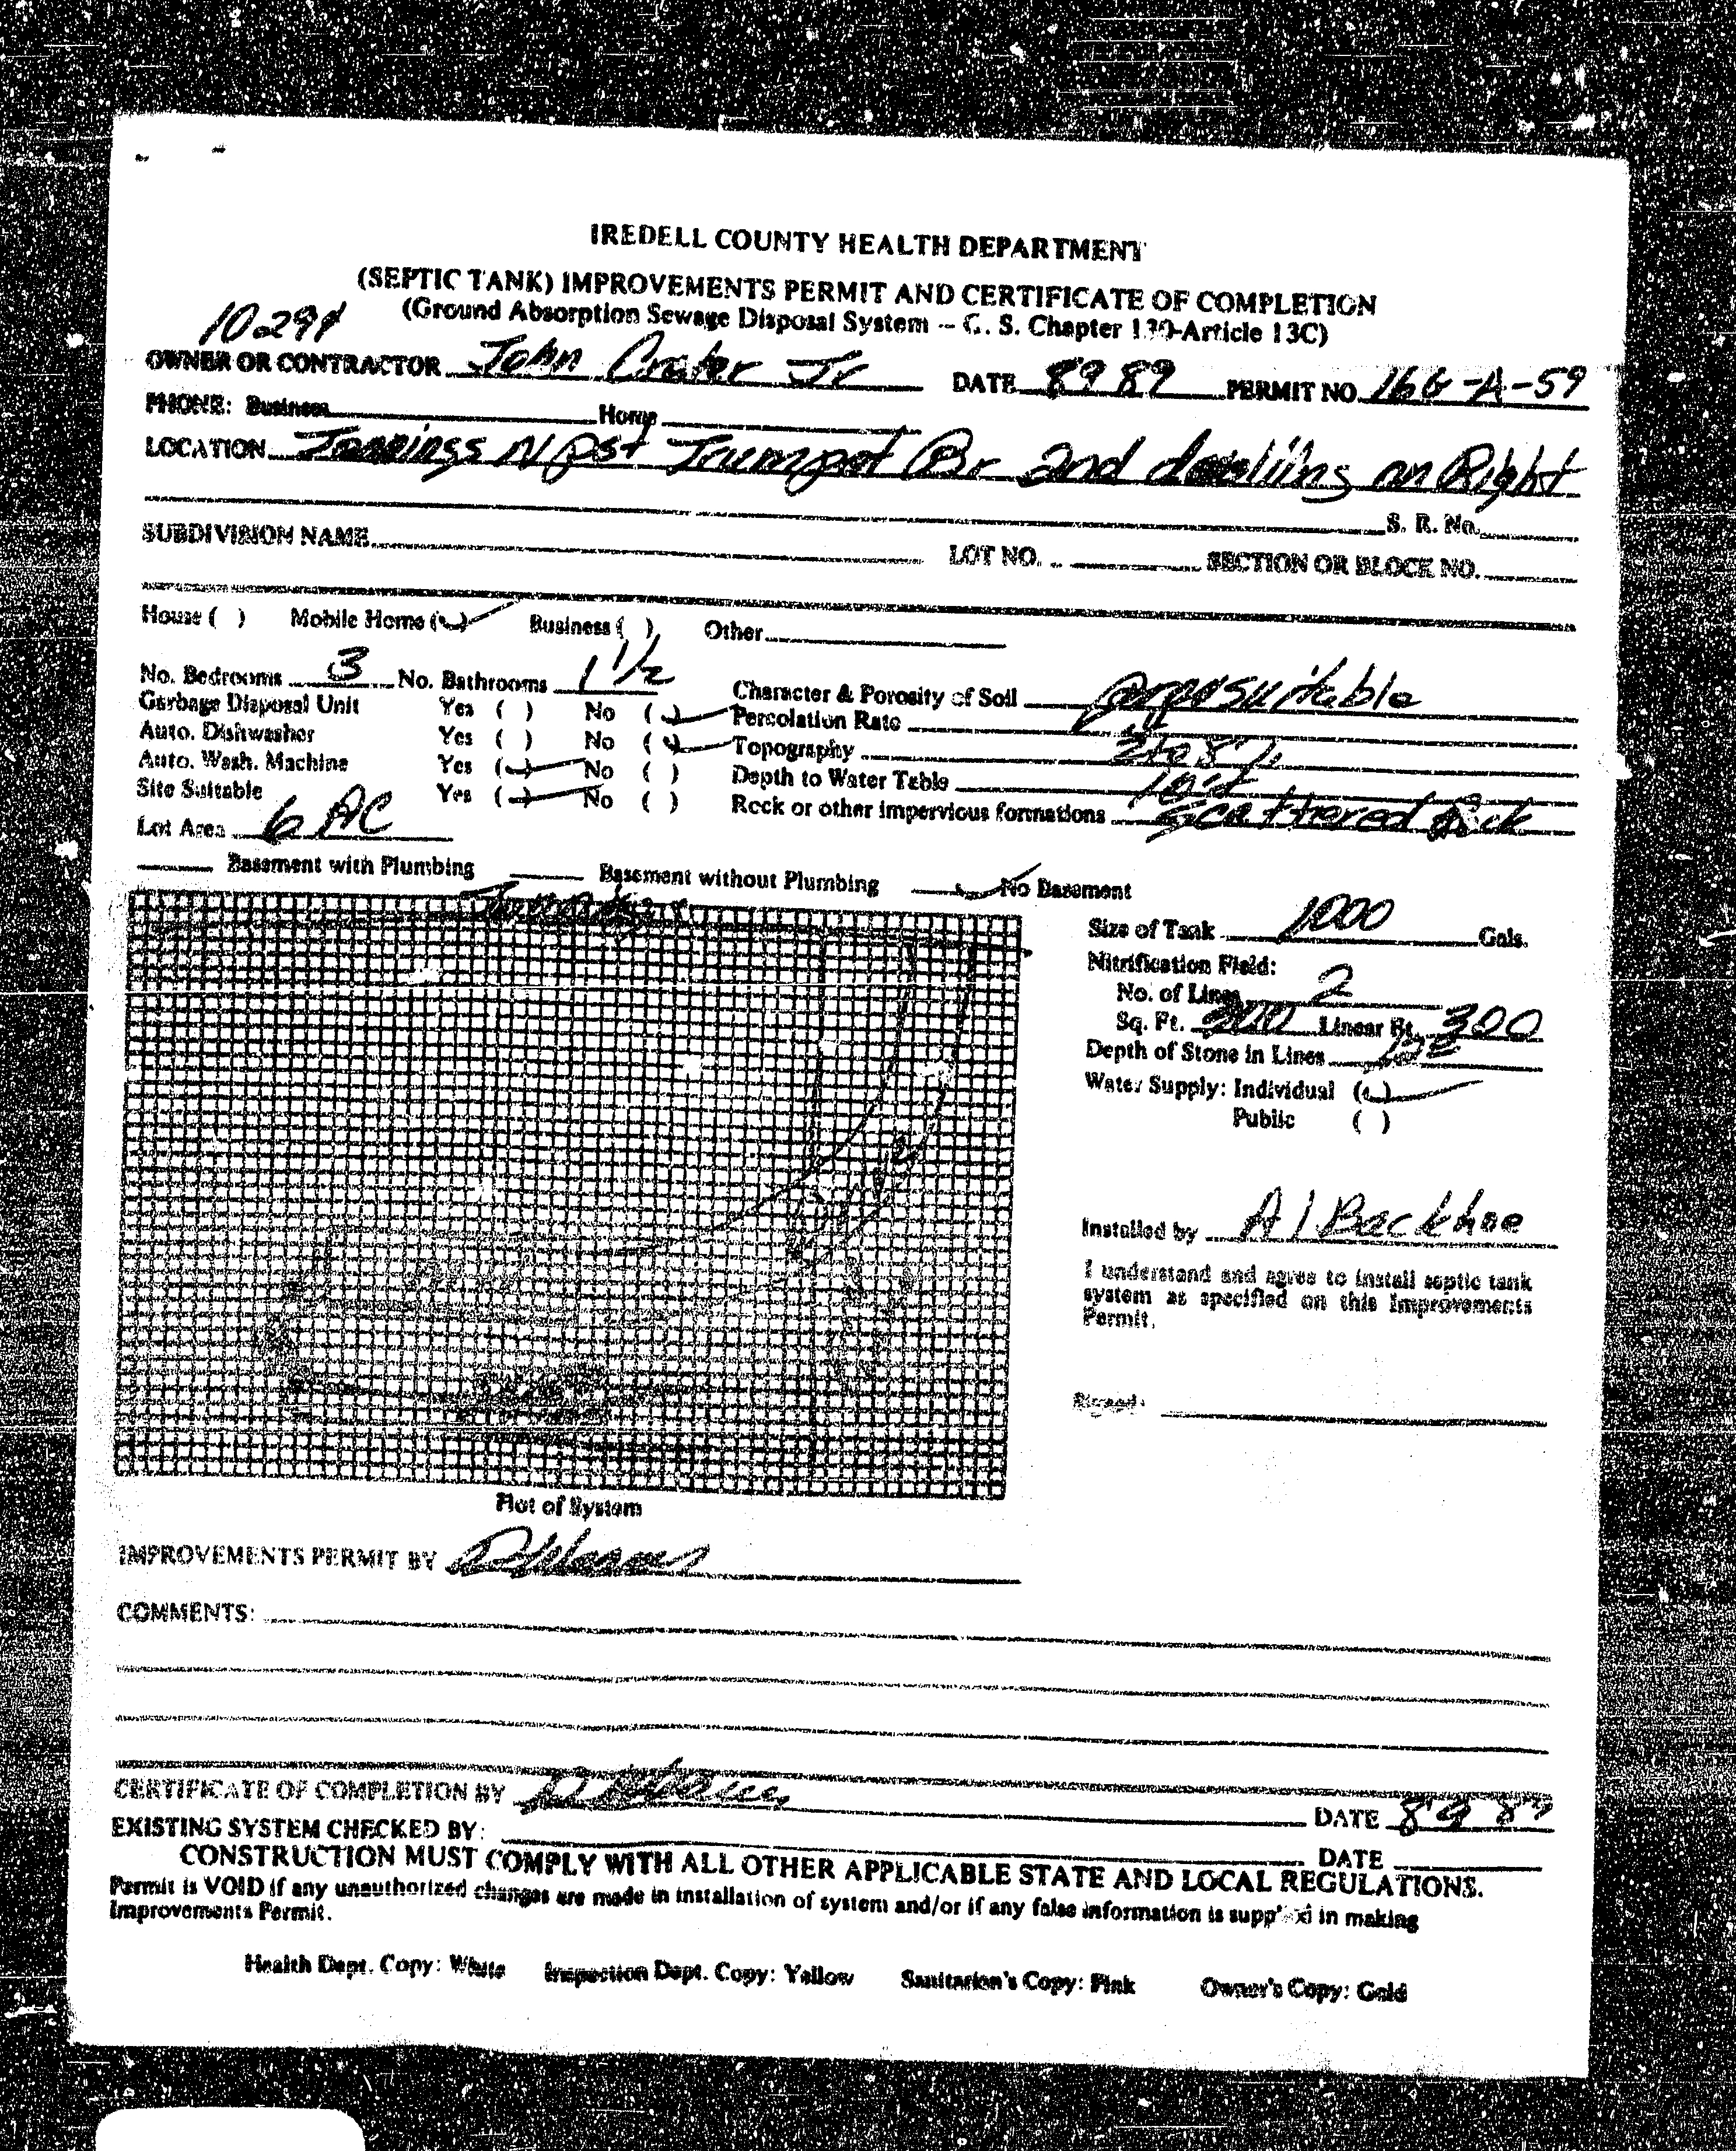 IREDELL COUNTY HEALTH DEPARTMENT
(SEPTIC TANK) IMPROVEMENTS PERMIT AND CERTIFICATE OF COMPLETION
(Ground Absorption Sewage Disposal System -- G. S. Chapter 130-Article 13C)
OWNER OR CONTRACTOR John Crater Jr DATE 8 9 89 PERMIT NO. 166-A-59
PHONE: Business Home
LOCATION Jennings N pst Trumpet Br 2nd on Right
S. R. No.
SUBDIVISION NAME LOT NO. SECTION OR BLOCK NO.
House ( ) Mobile Home (✓) Business ( ) Other
No. Bedrooms 3 No. Bathrooms 1 1/2 Character & Porosity of Soil
Garbage Disposal Unit Yes ( ) No (✓) Percolation Rate
Auto. Dishwasher Yes ( ) No (✓) Topography
Auto. Wash. Machine Yes (✓) No ( ) Depth to Water Table
Site Suitable Yes (✓) No ( ) Rock or other impervious formations Scattered Rock
Lot Area 6 AC
Basement with Plumbing Basement without Plumbing ✓ No Basement
Size of Tank 1000 Gals.
Nitrification Field:
No. of Lines 2
Sq. Ft. 900 Linear Ft. 300
Depth of Stone in Lines
Water Supply: Individual (✓)
Public ( )
Installed by A1 Backhoe
I understand and agree to install septic tank
system as specified on this Improvements
Permit.
Signed:
Plot of System
IMPROVEMENTS PERMIT BY
COMMENTS:
CERTIFICATE OF COMPLETION BY DATE 8 9 89
EXISTING SYSTEM CHECKED BY: DATE
CONSTRUCTION MUST COMPLY WITH ALL OTHER APPLICABLE STATE AND LOCAL REGULATIONS.
Permit is VOID if any unauthorized changes are made in installation of system and/or if any false information is supplied in making
Improvements Permit.
Health Dept. Copy: White Inspection Dept. Copy: Yellow Sanitarian's Copy: Pink Owner's Copy: Gold